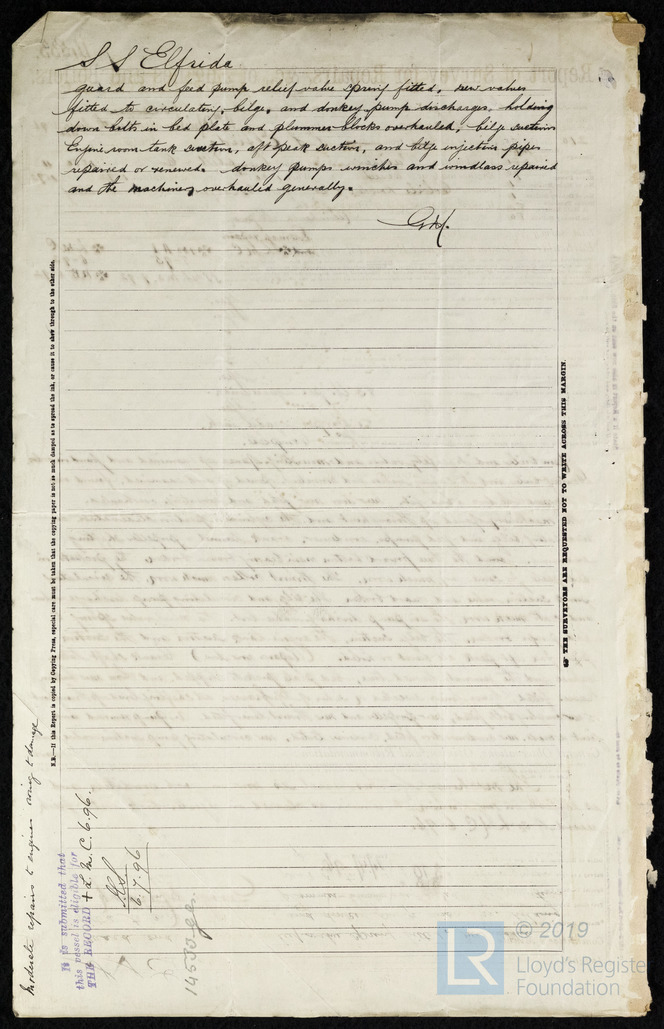 S S Elfrida
guard and feed pump relief valve spring fitted, new valves
fitted to circulating, bilge, and donkey pump discharges, holding
down bolts in bed plate and plummer blocks overhauled, bilge suctions
Engine room tank suction, aft peak suction, and bilge injection pipes
repaired or renewed. donkey pumps winches and windlass repaired
and the machinery overhauled generally.
N.B.—If this Report is copied by Copying Press, especial care must be taken that the copying paper is not so much damped as to spread the ink, or cause it to show through to the other side.
THE SURVEYORS ARE REQUESTED NOT TO WRITE ACROSS THIS MARGIN.
Moderate repairs to engines owing to damage
It is submitted that
this vessel is eligible for
THE RECORD + L.M.C. 6.96.
6.7.96
© 2019
LR
Lloyd's Register
Foundation